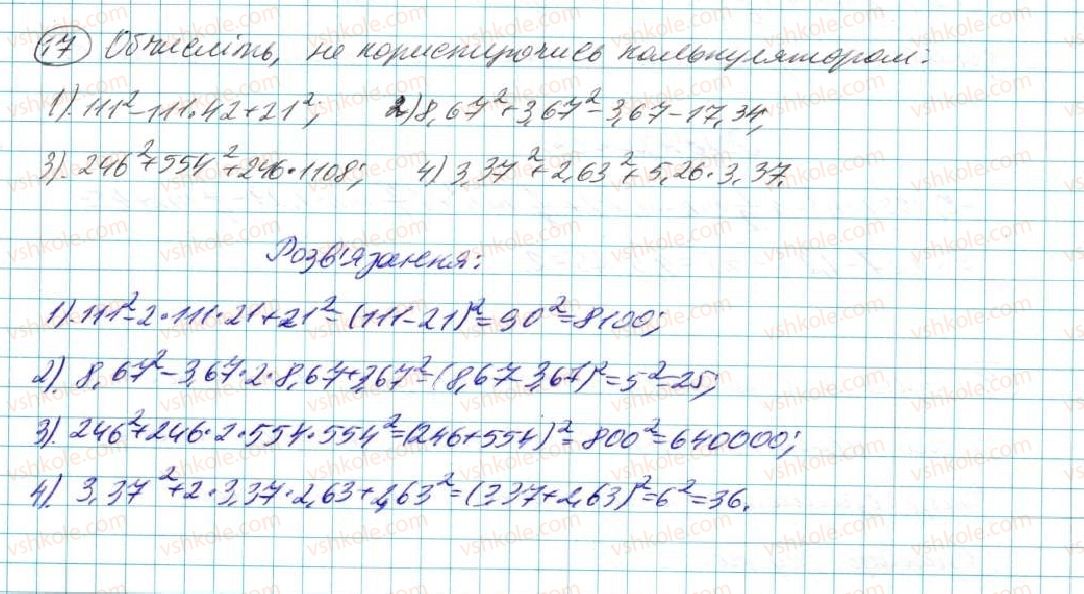 17 Обчисліть, не користуючись калькулятором:
1). 111²-111·42+21²; 2) 8,67²+3,67²-3,67-17,34;
3). 246²+554²+246·1108; 4) 3,37²+2,63²+5,26·3,37.
Розв'язання:
1). 111²-2·111·21+21²=(111-21)²=90²=8100;
2). 8,67²-3,67·2·8,67+3,67²=(8,67-3,67)²=5²=25;
3). 246²+246·2·554·554²=(246+554)²=800²=640000;
4). 3,37²+2·3,37·2,63+2,63²=(3,37+2,63)²=6²=36.